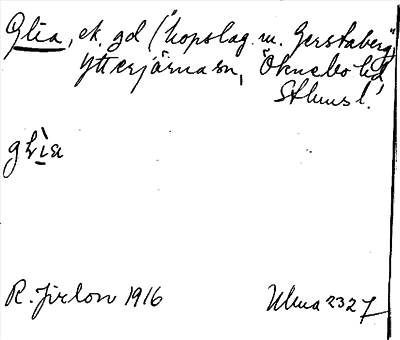 Glia, ek. gd ("hopslag. m. Gerstaberg",
Ytterjärna sn, Öknebo hd,
Sthms l.
glìa
R. Jirlow 1916
Ulma 2327